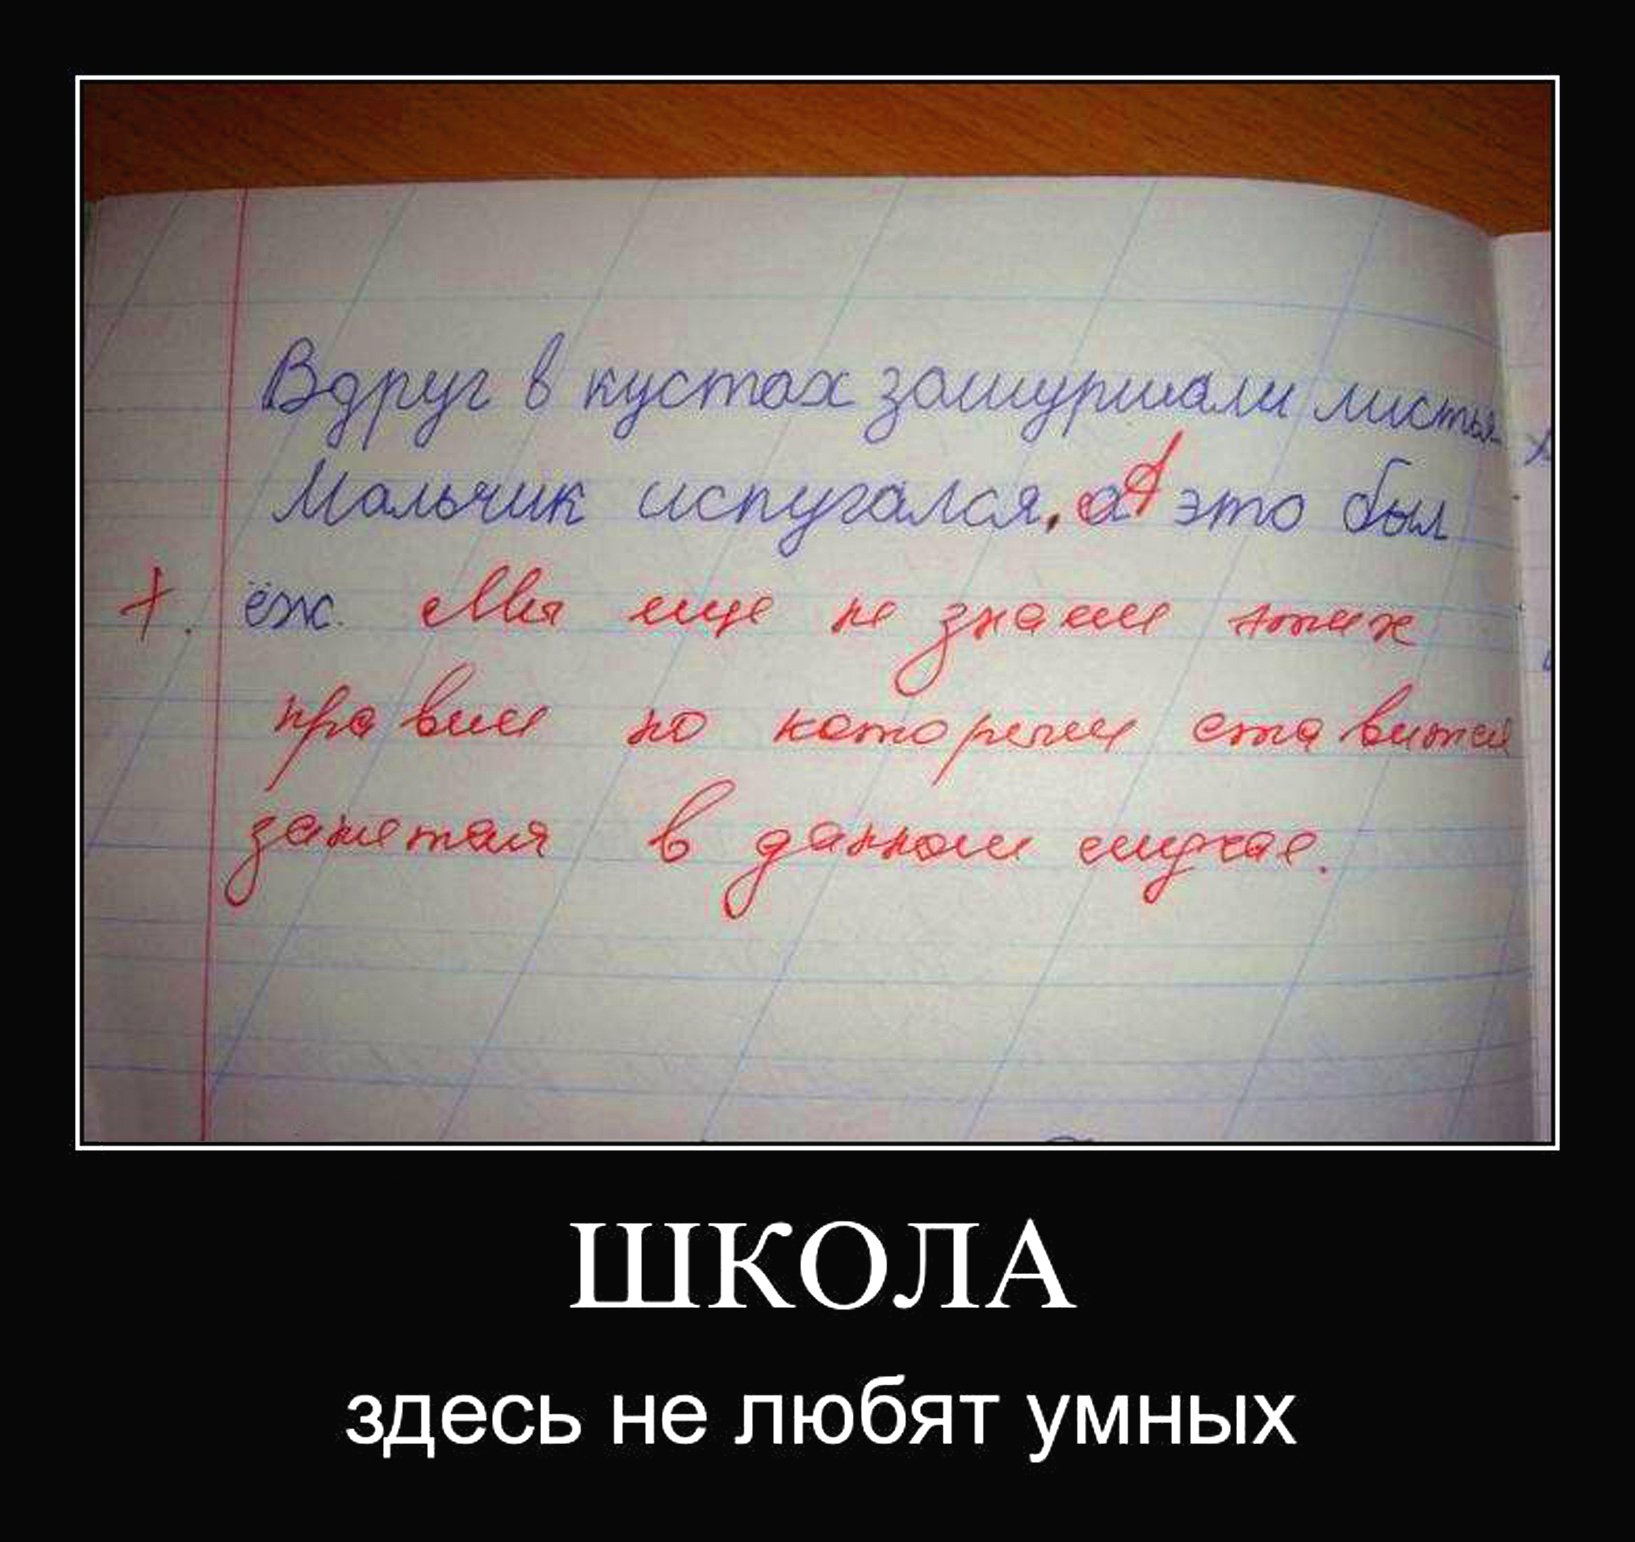 Вдруг в кустах зашуршали листья
Мальчик испугался, а А это был
+. ёж. Мы еще не знаем этих
правил по которым ставится
запятая в данном случае.
ШКОЛА
здесь не любят умных